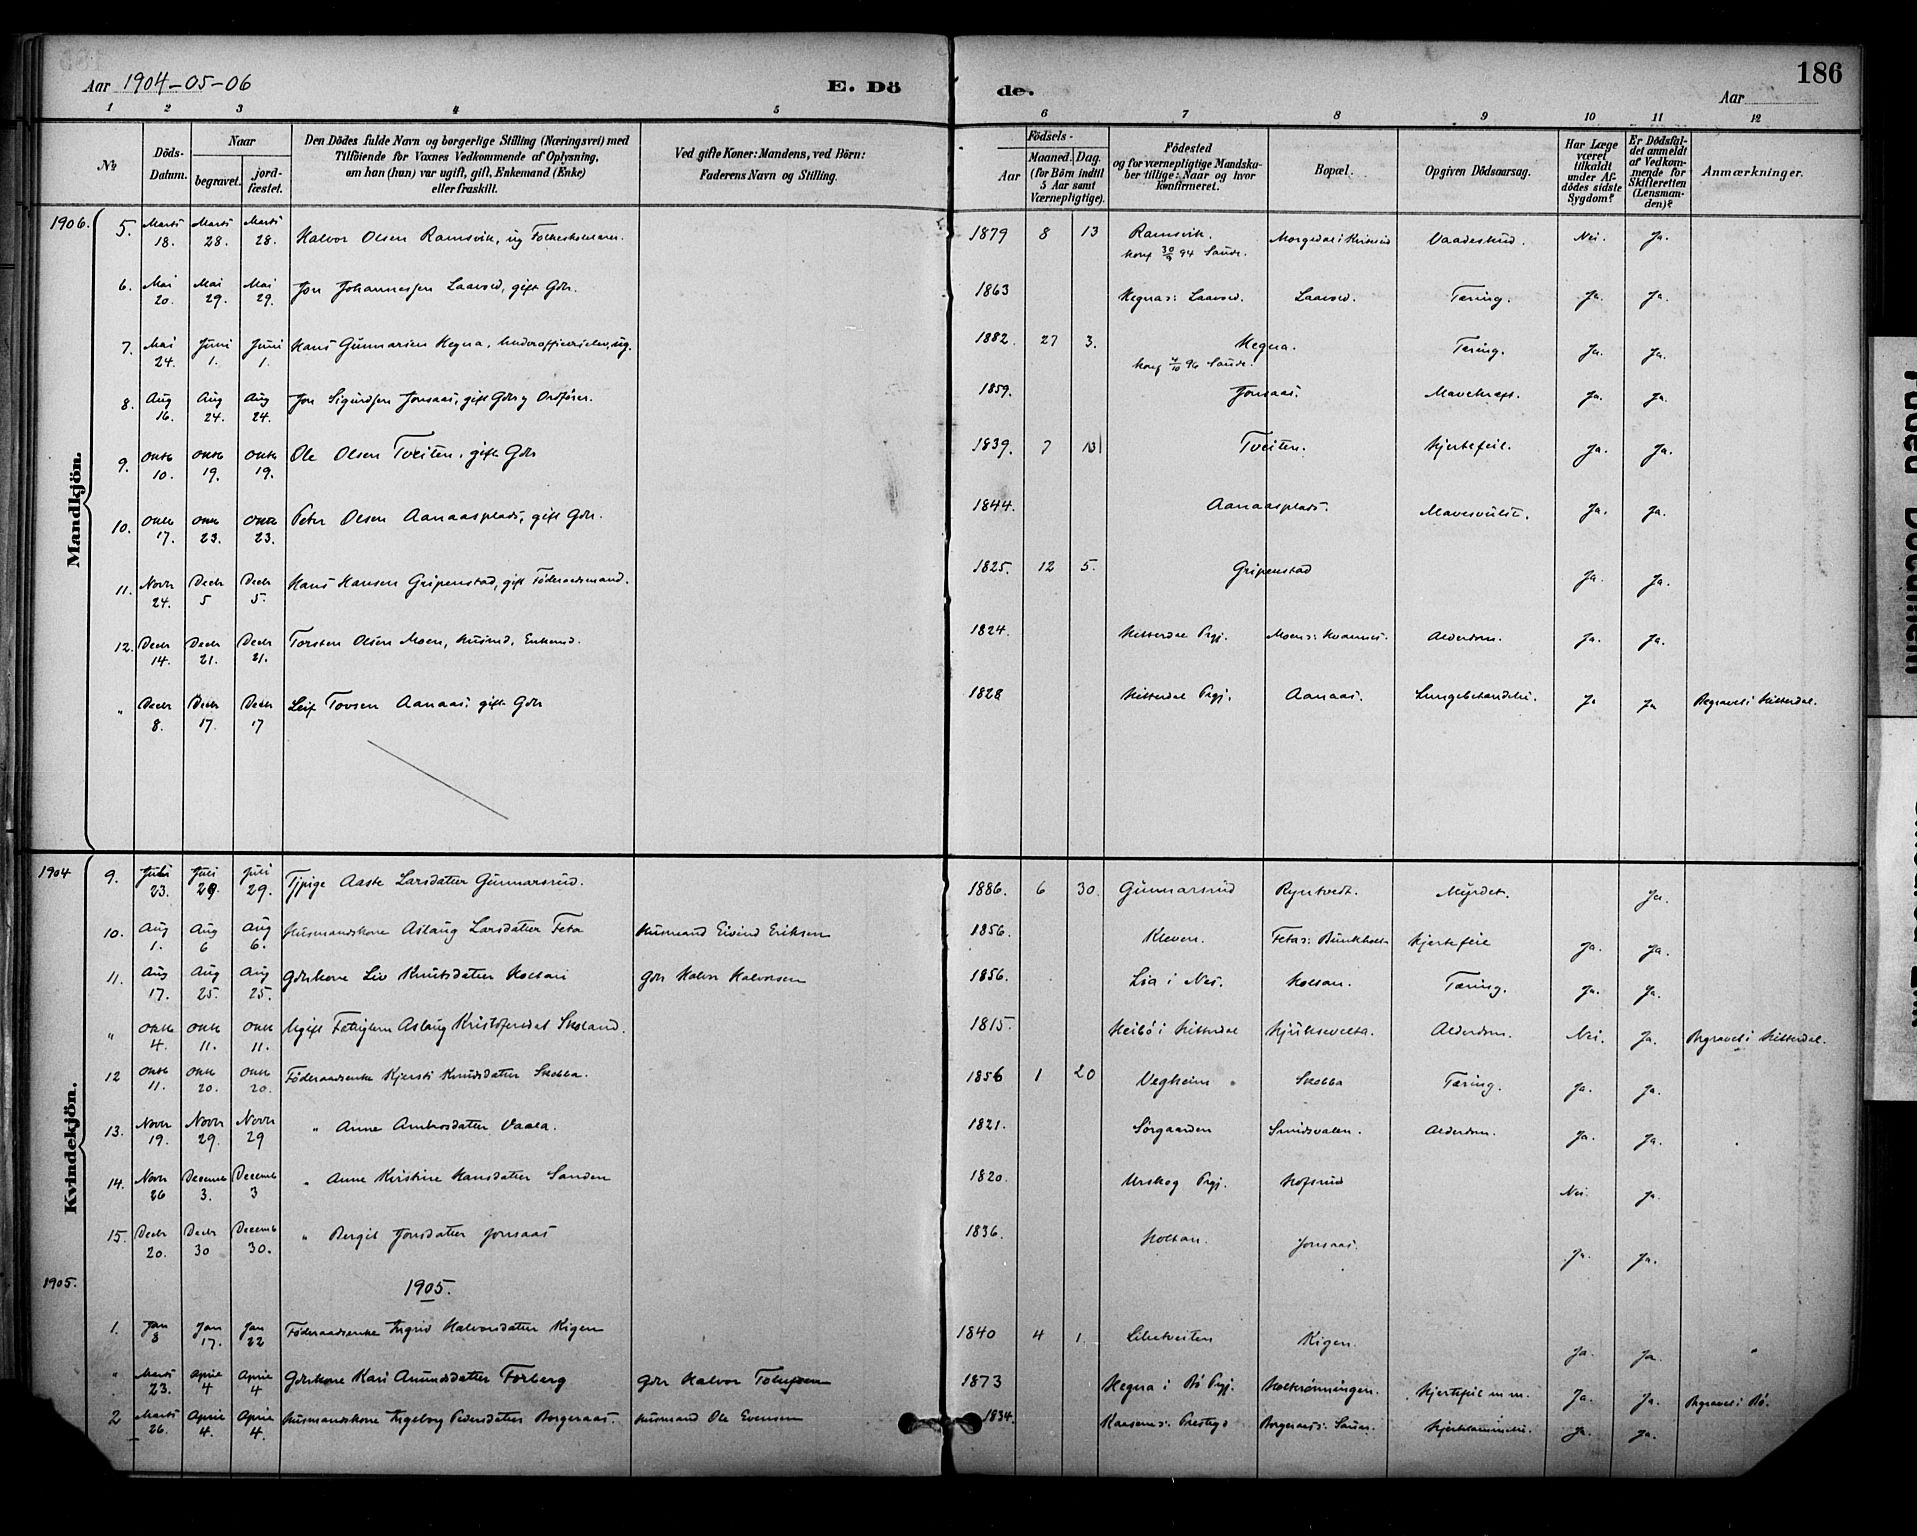 Aar 1904-05-06 E. Dö de. Aar 186
1 2 3 4 5 6 7 8 9 10 11 12
No Döds-Datum. Naar begravet. jordfæstet. Den Dödes fulde Navn og borgerlige Stilling (Næringsvei) med Tilföiende for Voxnes Vedkommende af Oplysning, om han (hun) var ugift, gift, Enkemand (Enke) eller fraskilt. Ved gifte Koner: Mandens, ved Börn: Faderens Navn og Stilling. Födsels- Aar Maaned. Dag. (for Börn indtil 5 Aar samt Værnepligtige). Födested og for værnepligtige Mandskaber tillige: Naar og hvor konfirmeret. Bopæl. Opgiven Dödsaarsag. Har Læge været tilkaldt under Afdödes sidste Sygdom? Er Dödsfaldet anmeldt af Vedkommende for Skifteretten (Lensmanden)? Anmærkninger.
Mandkjön.
1906. 5. Marts 18. Marts 28. Marts 28. Halvor Olsen Ramsvik, ug Folkeskolelærer. 1879 8 13 Ramsvik. konf 30/9 94 Saude. Morgedal i Vaadeskud. Nei. Ja.
6. Mai 20. Mai 29. Mai 29. Jon Johannessen Laavod, gift Gdr. 1863 Hegnas: Laavod. Laavod. Tæring. Ja. Ja.
7. Mai 24. Juni 1. Juni 1. Hans Gunnarsen Hegna, Underofficerselev, ug. 1882. 27 3. Hegna. konf 4/10 96 Saude. Tæring. Ja. Ja.
8. Aug 16. Aug 24. Aug 24. Jon Sigurdsen Jonsaas, gift Gdr og Ordfører. 1859. Jonsaas. Mavekræft. Ja. Ja.
9. Oktb 10. Oktb 19. Oktb 19. Ole Olsen Tveiten, gift Gdr 1839. 7 Tveiten. Hjertefeil. Ja. Ja.
10. Oktb 17. Oktb 23. Oktb 23. Peter Olsen Aanaasplads, gift Gdr. 1844. Aanaasplads. Mavesvulst. Ja. Ja.
11. Novr 24. Decbr 5 Decbr 5. Hans Hansen Gripenstad, gift Føderaadsmand. 1825. 12 5. Gripenstad Ja. Ja.
12. Decbr 14. Decbr 21. Decbr 21. Torsten Olsen Moen, Husmd, Enkemd. 1824. Hitterdal Prgj. Moen s: Alderdom. Ja. Ja.
" Decbr 8. Decbr 17. Decbr 17 Leif Tovsen Aanaas, gift Gdr 1828 Hitterdal Prgj. Aanaas. Lungebetændelse. Ja Ja Begravet i Hitterdal.
Kvindekjön.
1904 9. Juli 23. Juli 29. Juli 29. Tjpige Aaste Larsdatter Gunnarsrud. 1886. 6 30. Gunnarsrud Myrdet. Ja.
10. Aug 1. Aug 6 Aug 6. Husmandskone Aslaug Larsdatter Feta Husmand Eivind Eriksen 1856. Kleven. Fetas: Bunkholt Hjertefeil Ja. Ja.
11. Aug 17. Aug 25. Aug 25. Gdrkone Liv Knutsdatter Holtan Gdr Halvor Halvorsen 1856. Lia i Nes. Holtan. Tæring. Ja. Ja.
" Oktb 4. Oktb 11. Oktb 11. Ugift Fattiglem Aslaug Kristofersdat Skoland. 1815. Heibö i Hitterdal Alderdom. Nei. Ja. Begravet i Hitterdal.
12 Oktb 11. Oktb 20. Oktb 20. Føderaadsenke Kjersti Knudsdatter Skobba. 1856 1 20 Vegheim Skobba Tæring. Ja. Ja.
13. Novr 19. Novr 29. Novr 29 " Anne Ambrosdatter Vaala. 1821. Sørgaarden Smidsvalen. Alderdom. Ja. Ja.
14. Novr 26 Decemb 3. Decemb 3 " Anne Kirstine Hansdatter Sanden 1820. Urskog Prgj. Hofsrud Nei. Ja.
15. Decbr 20. Decbr 30 Decemb 30. " Bergit Jonsdatter Jonsaas 1836. Holtan. Jonsaas. Ja. Ja.
1905. 1905.
1. Jan 8 Jan 17. Jan 22 Føderaadsenke Ingrid Halvorsdatter Rigen 1840 4 1. Rigen. Ja. Ja.
" Marts 23. April 4 April 4 Gdrkone Kari Amundsdatter Forberg Gdr Halvor Tollefsen 1873 Hegna i Bö Prgj. Holtrønningen. Hjertefeil m m. Ja. Ja. Begravet i Bö.
2 Marts 26. April 4. April 4 Husmandskone Ingeborg Pedersdatter Borgeraas. Husmand Ole Evensen 1834. Kaasene: Prestegd Borgeraas: Ja. Ja.